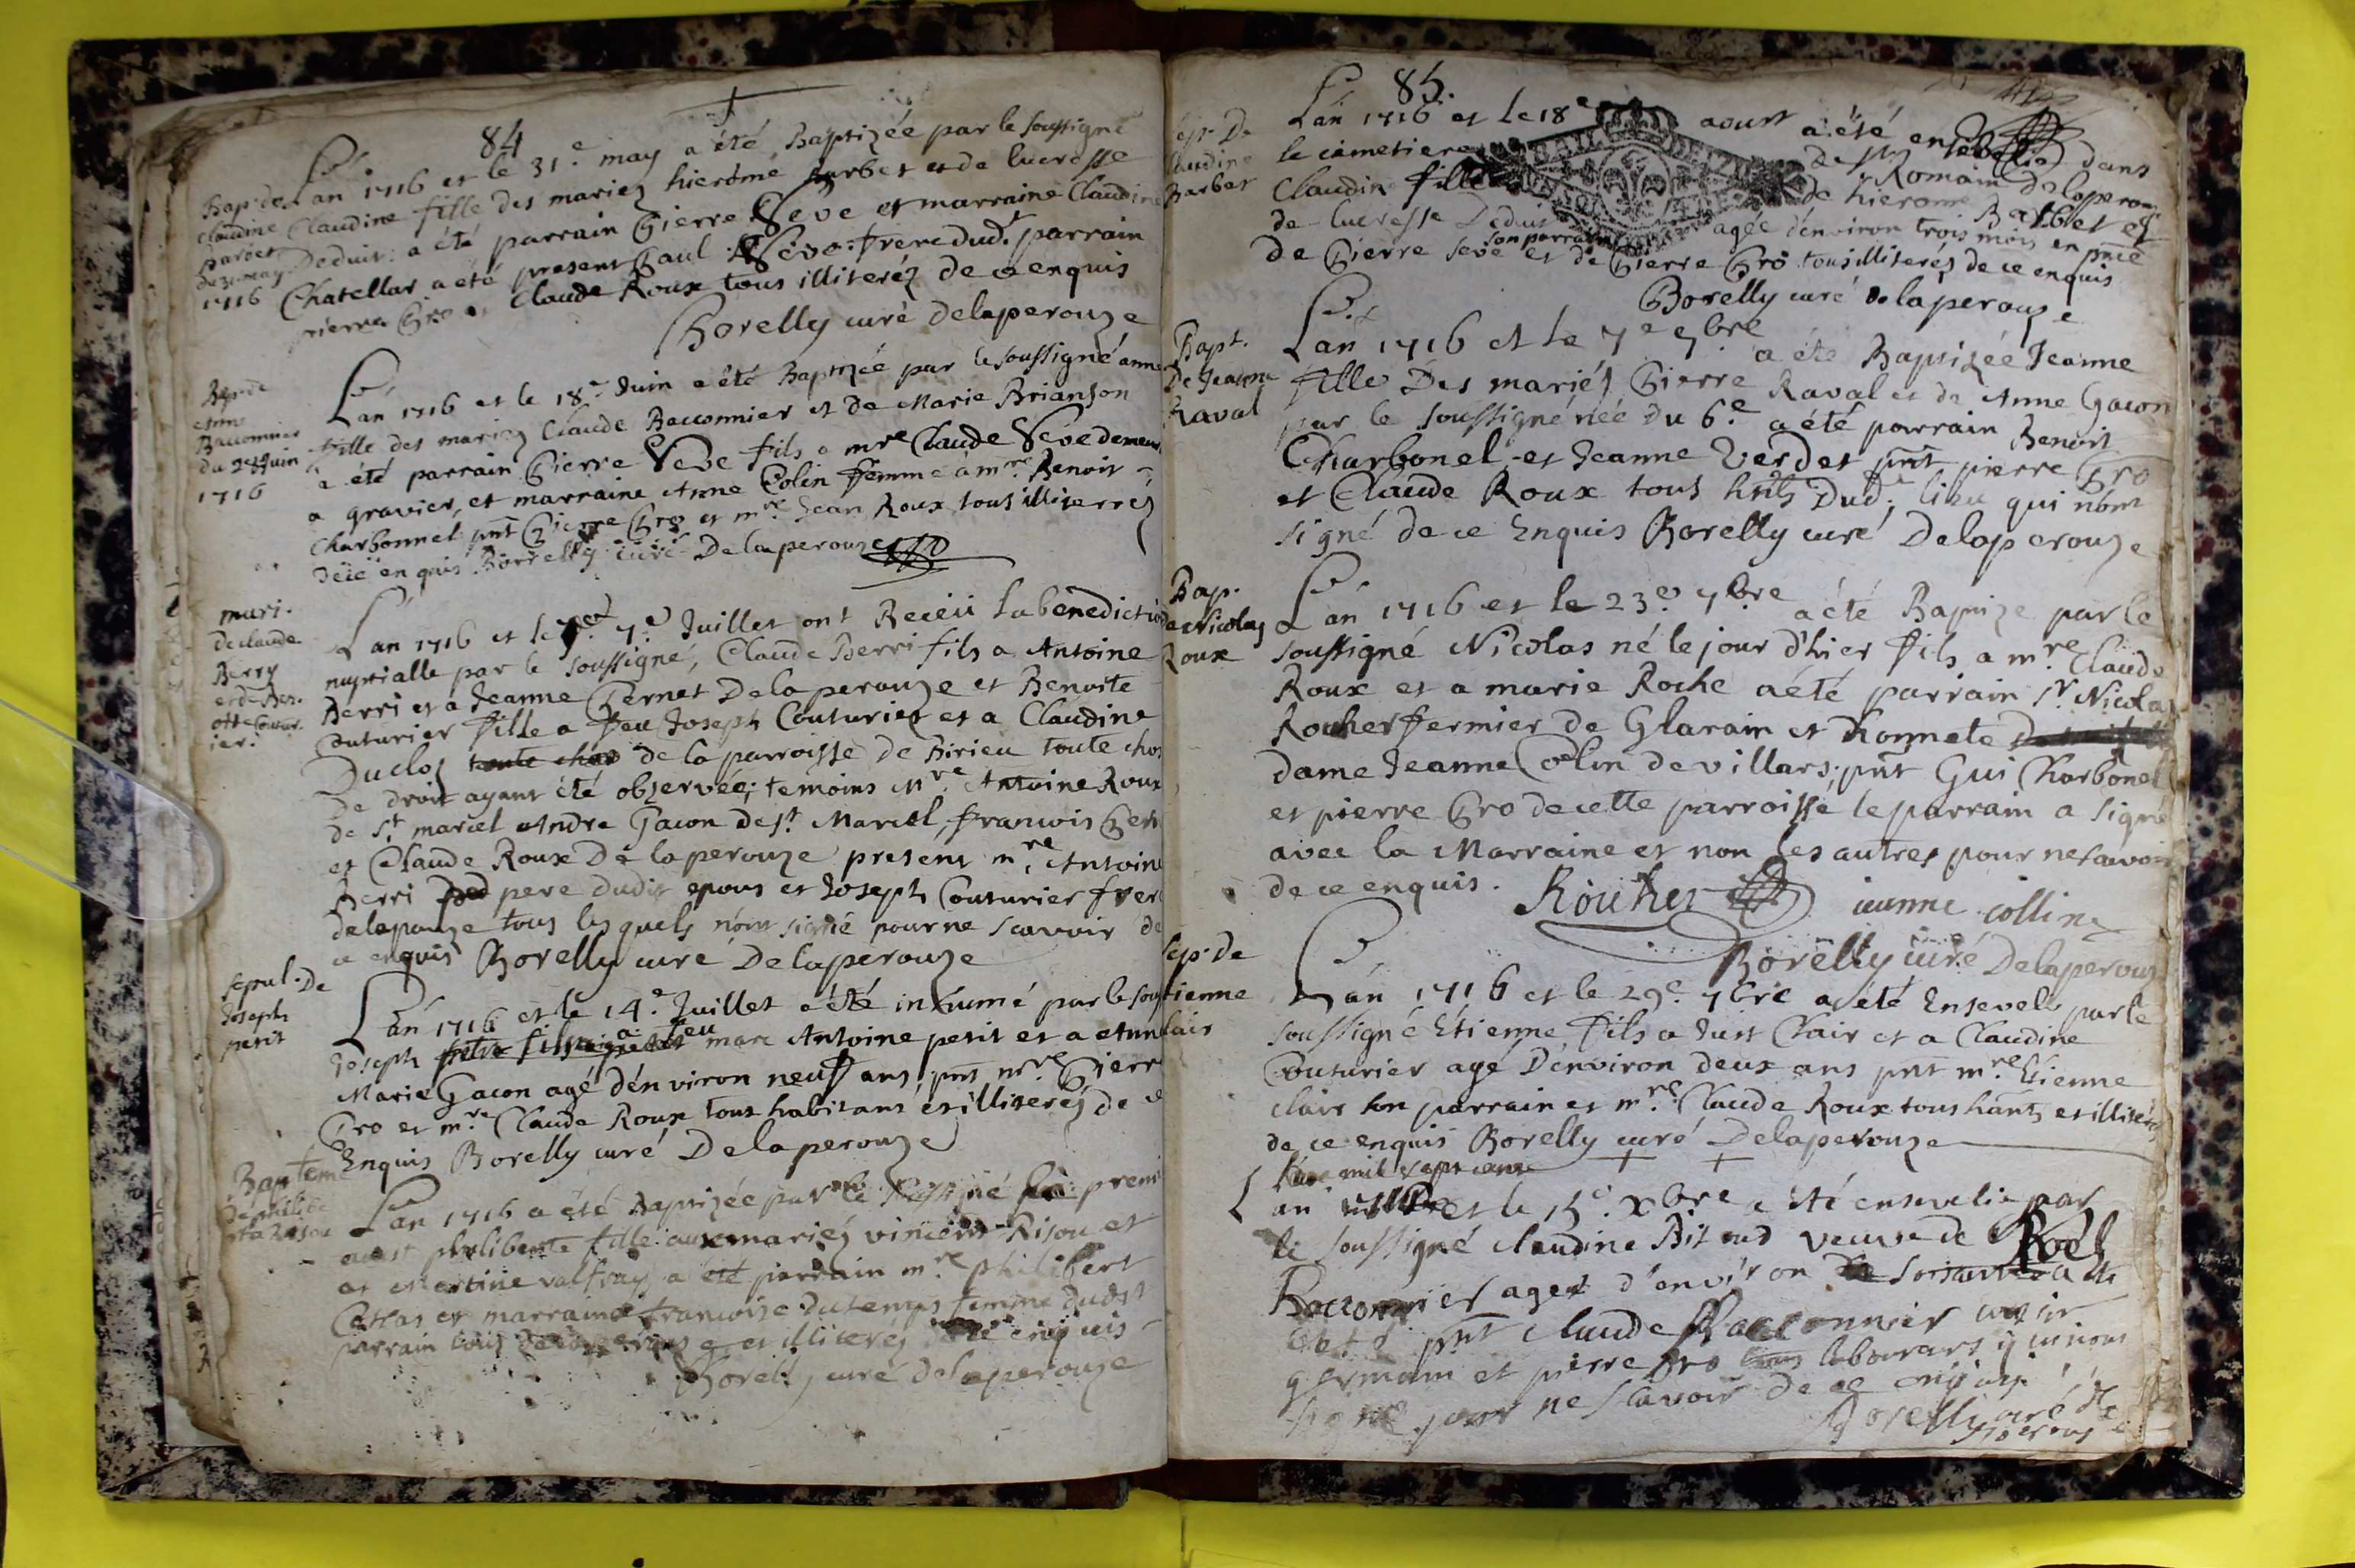 84
Bap. de
claudine
Barbet
du 31. may
1716
L'an 1716 et le 31.e may a été Baptizée par le soussigné
Claudine fille des mariez hierôme Barbet et de lucresse
Deduit. a été parrain Pierre Seve et marraine Claudine
Chatellar a été present Paul Seve frere dud.t parrain
pierre Gro et Claude Roux tous illiteréz de ce enquis
Borelly curè delaperouze
Bap. de
Anne
Bacconnier
du 28 Juin
1716
L'an 1716 et le 18.e Juin a été Baptizée par le soussigné anne
fille des mariez Claude Bacconnier et de Marie Brianson
a été parrain Pierre Seve fils a mre Claude Seve demeur
a gravier, et marraine Anne Colin femme a mre Benoit
Charbonnel pnt Pierre Gro et mre Jean Roux tous illiterréz
dece enquis Borrelly curé Delaperouze
mari.
de claude
Berry
et de Ben.
oitte Coutur.
ier.
L'an 1716 et le 7.e Juillet ont Receu la benediction
nuptialle par le soussigné, Claude Berri fils a Antoine
Berri et a Jeanne Pernet Delaperouze et Benoite
Couturier fille a feu Joseph Couturier et a Claudine
Duclos toute chos de la parroisse de Birieu toute chos
de droit ayant été observée; temoins Mre Antoine Roux
de St marcel Andre Gacon de St. Marcel, francois Pern
et Claude Roux De laperouze present mre Antoine
Berri pere dudit epoux et Joseph Couturier frere
delepouze tous lesquels n'ont signé pour ne scavoir de
ce enquis Borelly curé Delaperouze
sepul. De
Joseph
petit
L'an 1716 et le 14.e Juillet a été inhumé par le sous
Joseph fils a feu marc Antoine petit et a
Marie Gacon agé d'environ neuf ans, pnt mre Pierre
Gro et mre Claude Roux tous habitans et illiteréz de ce
Enquis Borelly curé Delaperouze
Baptem
de philibe
rta Risou
L'an 1716 a été Baptizée par le soussigné le premi
aoust philiberte fille aux mariez vincent Risou et
et valfray a été parrain mre philibert
Cattas et marraine francoise dutemps femme dudit
parrain tous delaperouze et illiteréz de ce enquis
Borelly curé delaperouze
85.
sep. De
Claudine
Barbet
L'an 1716 et le 18e aoust a été ensevelie dans
le cimetiere de St Romain delaperouze
Claudine fille de hierome Barbet et
de lucresse Deduit agée d'environ trois mois en pnce
de Pierre Seve son parrain et de Pierre Gro tous illiteréz de ce enquis
Borelly curé delaperouze
Bapt.
De Jeanne
Raval
L'an 1716 et le 7e 7bre a été Baptizée Jeanne
fille Des mariéz Pierre Raval et de Anne Gacon
par le soussigné née du 6.e a été parrain Benoit
Charbonel et Jeanne Verdet pnt pierre Gro
et Claude Roux tous hnts Dud. lieu qui n'ont
signé de ce Enquis Borelly curé Delaperouze
Bap.
de Nicolas
Roux
L'an 1716 et le 23e 7bre a été Baptize par le
soussigné Nicolas né le jour d'hier fils a mre Claude
Roux et a marie Roche a été parrain Sr. Nicolas
Rouher fermier de Glarain et honnete
dame Jeanne Colin de villars; pnt Gui Charbonel
et pierre Gro de cette parroisse le parrain a signé
avec la Marraine et non les autres pour ne savoir
de ce enquis. Rouher jeanne colline
Borelly curé Delaperouze
sep. de
Etienne
Clair
L'an 1716 et le 29e 7bre a été Enseveli par le
soussigné Etienne fils a Just Clair et a Claudine
Couturier agé D'environ deux ans pnt mre Etienne
clair son parrain et mre Claude Roux tous hants et illiteréz
de ce enquis Borelly curé Delaperouze
mil sept cent
L'an et le 15e. xbre a été ensevelie par
le soussigné claudine veuve de
Bacconnier agée d'environ
pnt claude Bacconnier cousin
germain et pierre gro laboureurs qui n'ont
signé pour ne scavoir de ce enquis
Borelly curé de
laperouze